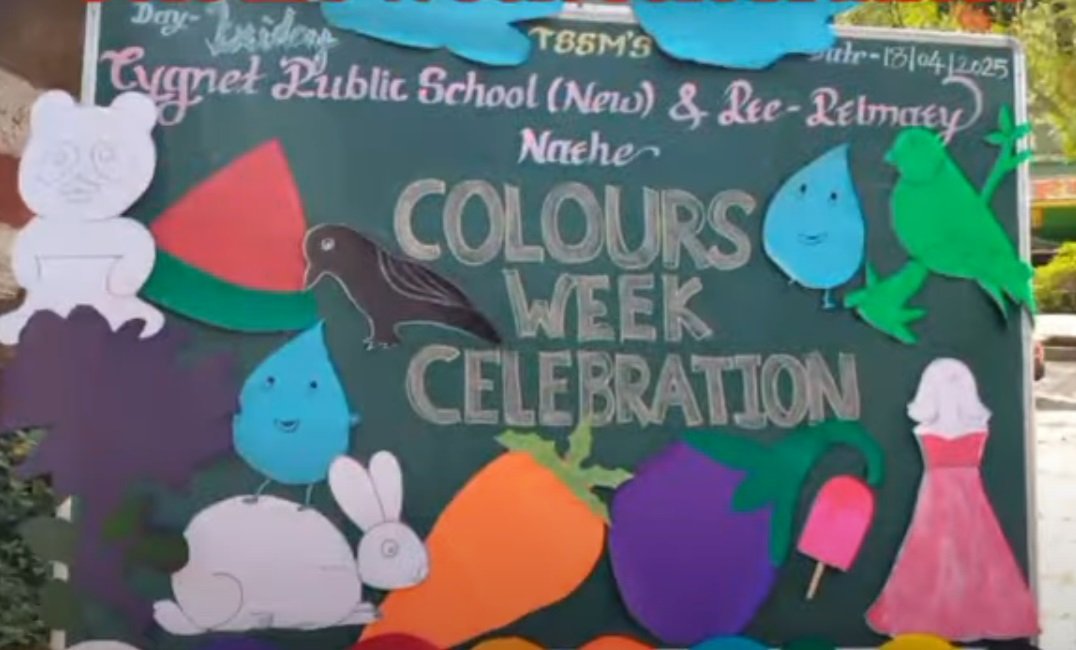 Day- Friday TSSM'S Date-18/04/2025
Cygnet Public School (New) & Pre-Primary
Narhe
COLOURS
WEEK
CELEBRATION